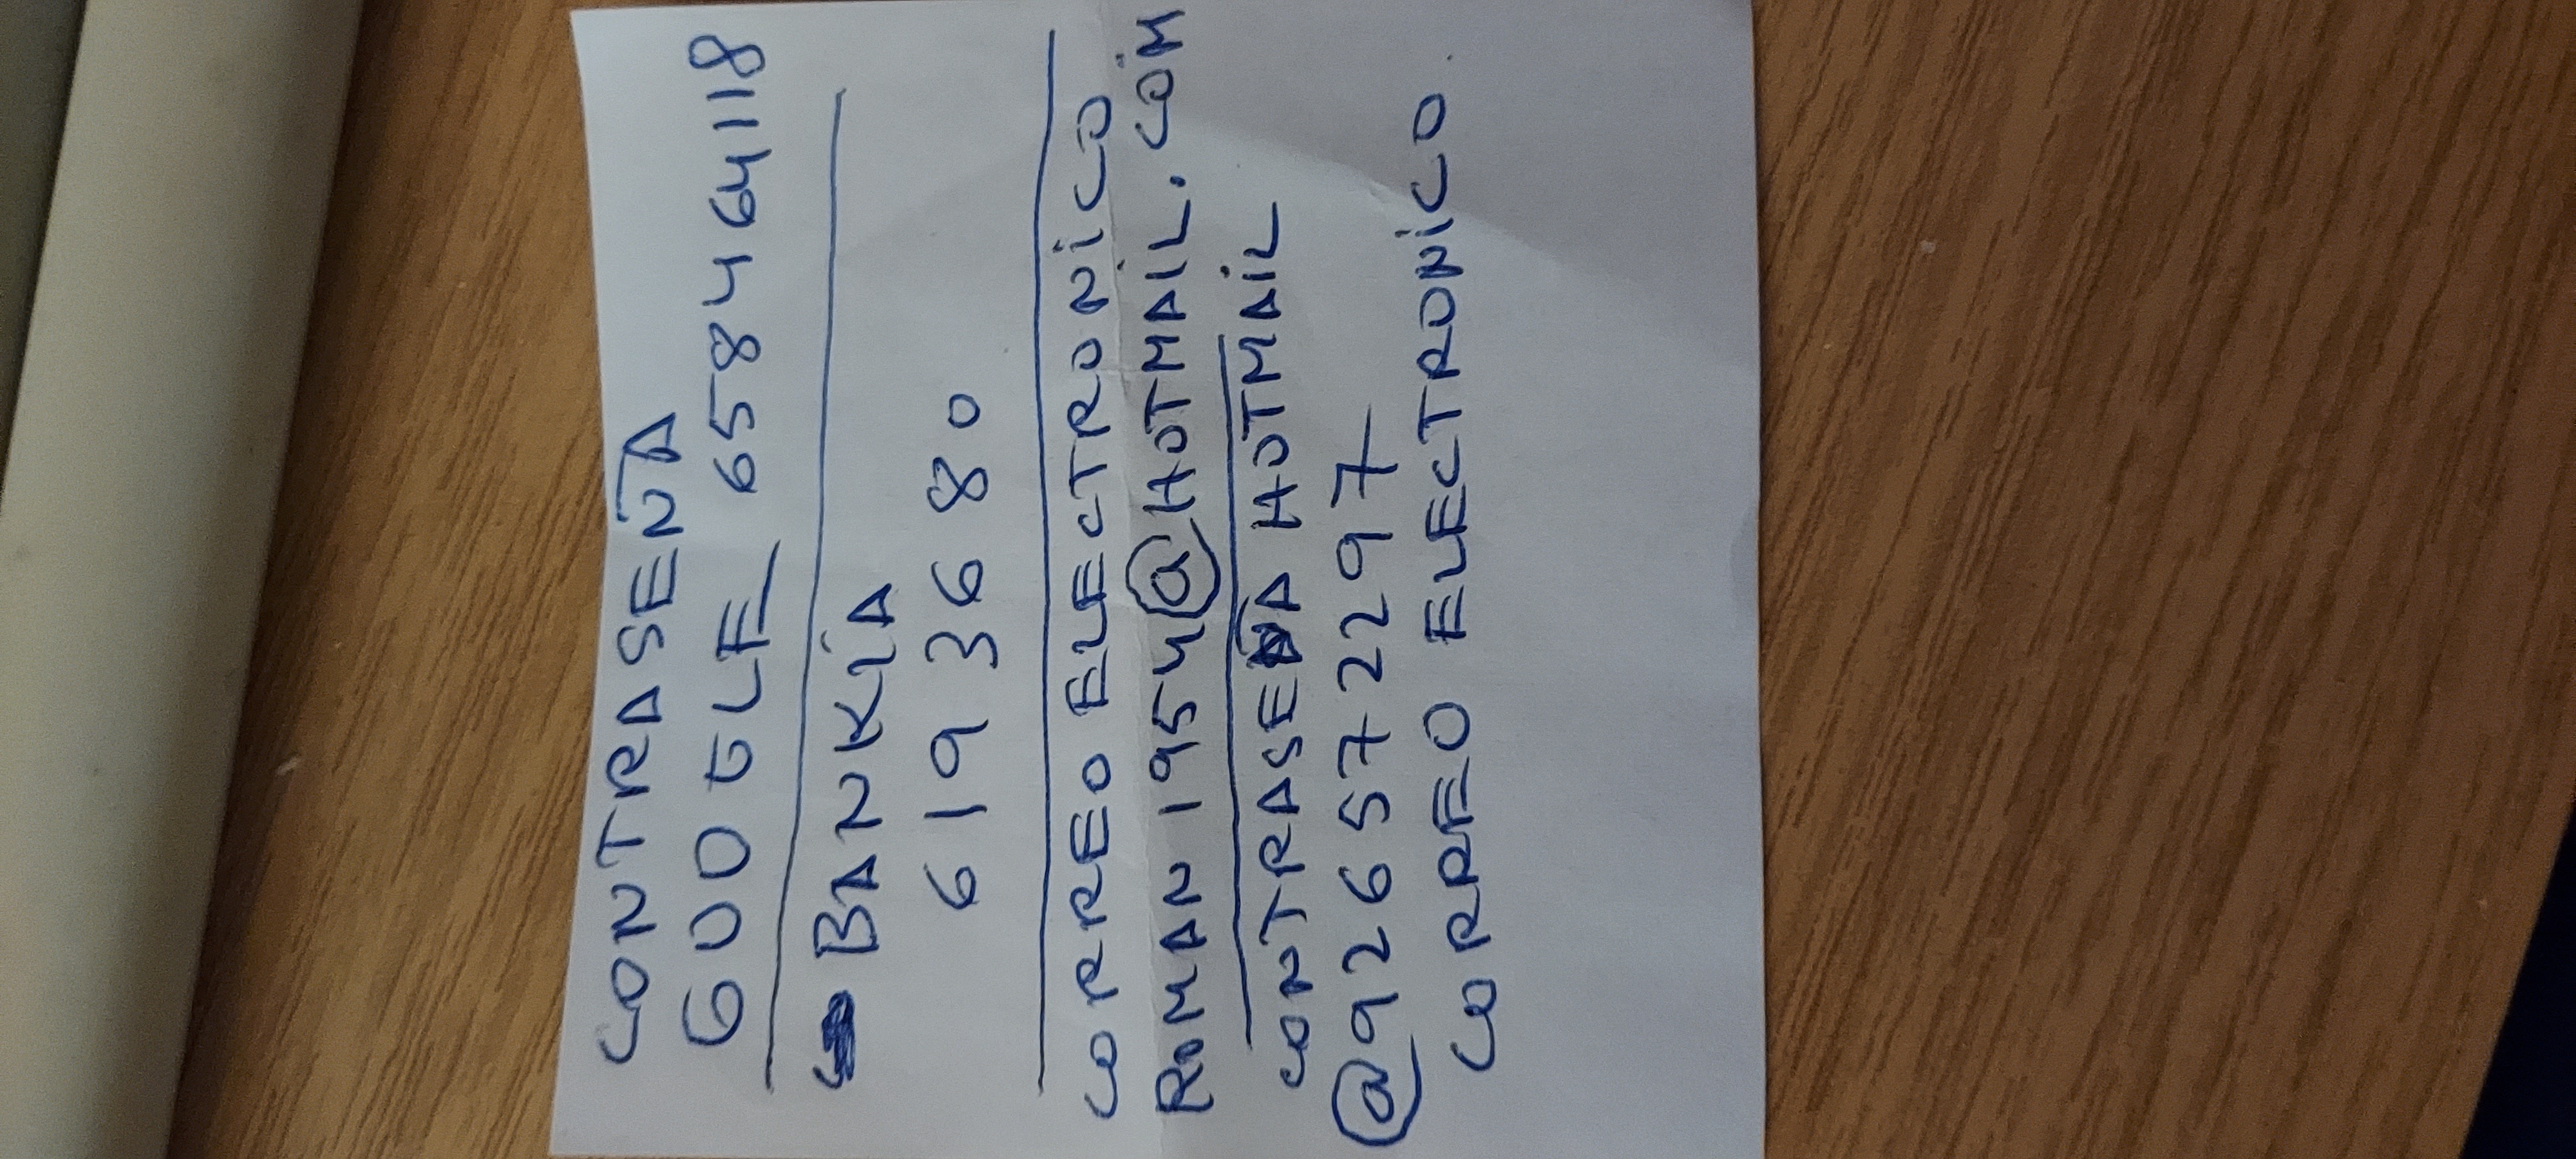 CONTRASEÑA
GOOGLE 658464118
BANKIA
6193680
CORREO ELECTRONICO
ROMAN 1954@HOTMAIL.COM
CONTRASEÑA HOTMAIL
@926572297
CORREO ELECTRONICO.